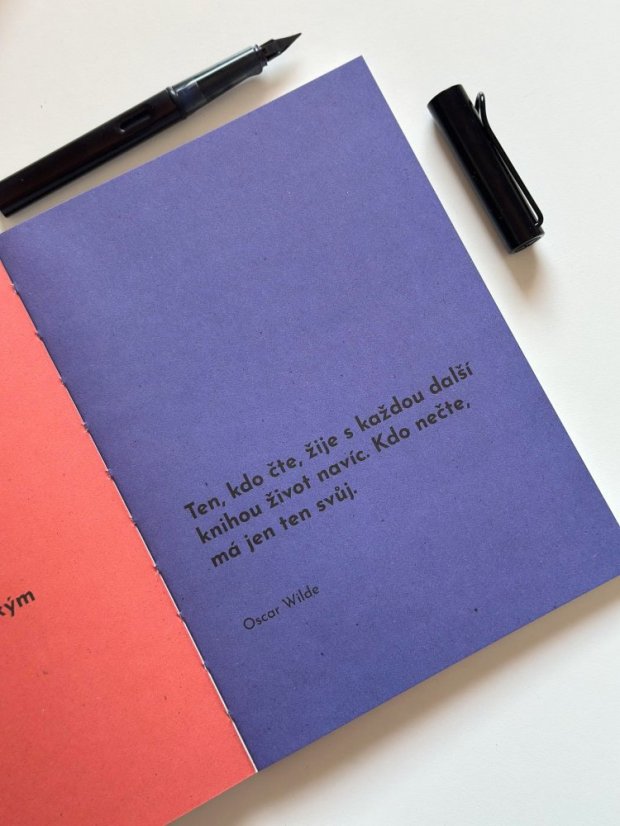 Ten, kdo čte, žije s každou další
knihou život navíc. Kdo nečte,
má jen ten svůj.
Oscar Wilde